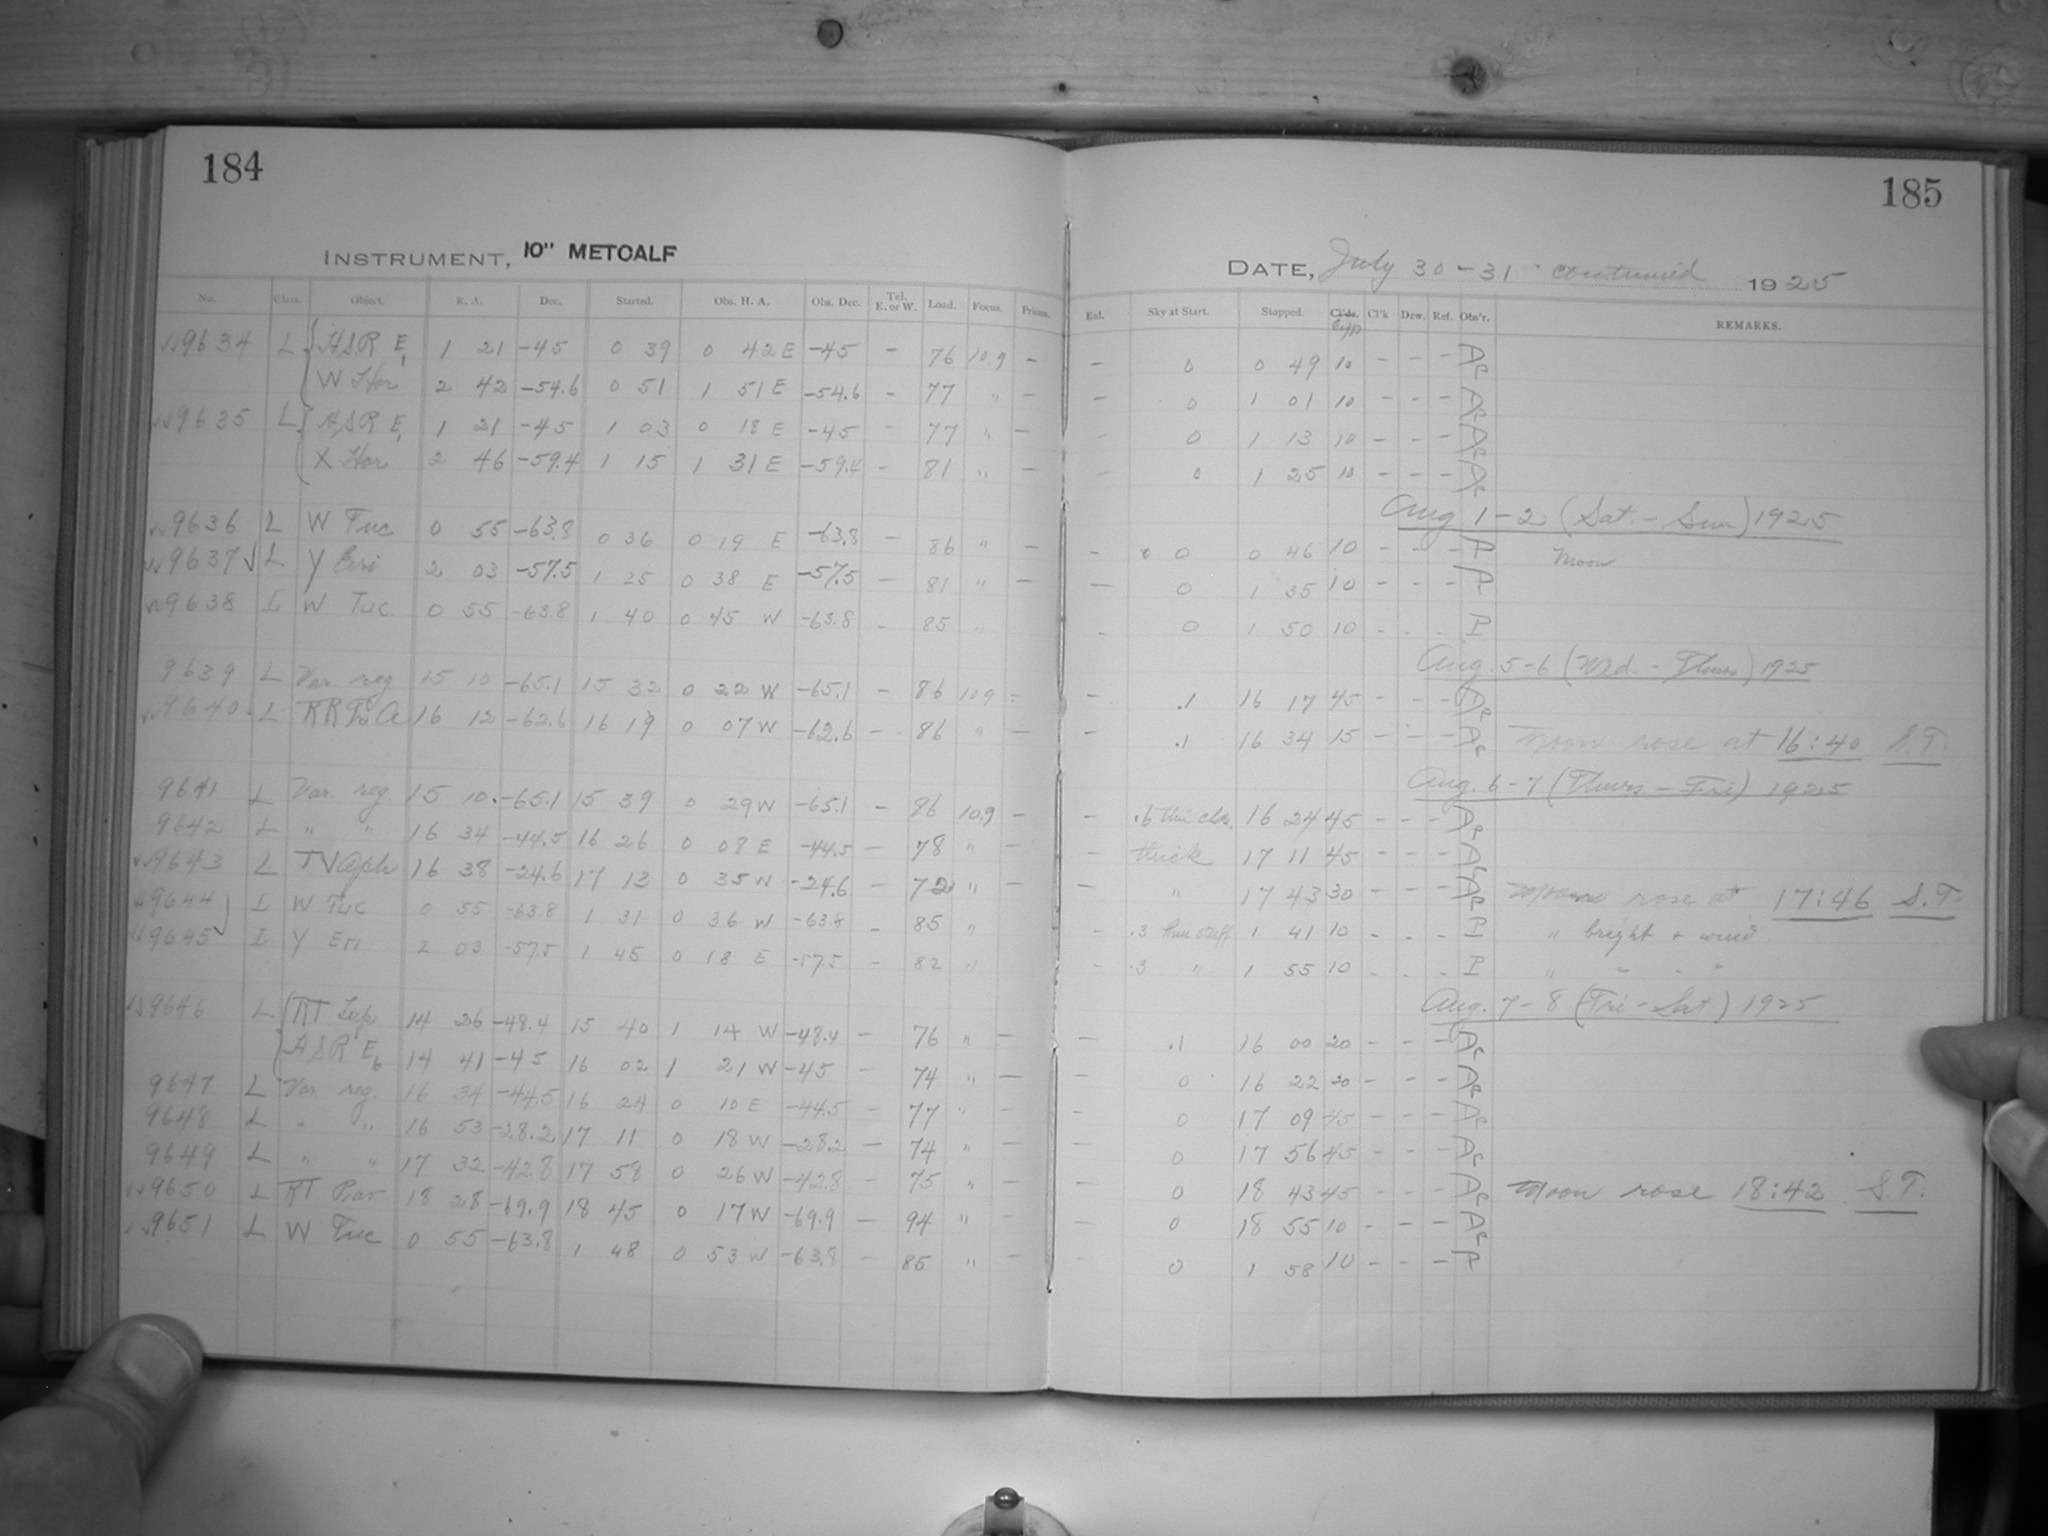 184
INSTRUMENT, 10" METCALF
No. Class. Object. R. A. Dec. Started. Obs. H. A. Obs. Dec. Tel. E. or W. Load. Focus. Prisms.
9634 L HSR E1 1 21 -45 0 39 0 42 E -45 - 76 10.9 -
W Hor 2 42 -54.6 0 51 1 51 E -54.6 - 77 " -
9635 L HSR E1 1 21 -45 1 03 0 18 E -45 - 77 " -
X Hor 2 46 -59.4 1 15 1 31 E -59.4 - 81 " -
9636 L W Tuc 0 55 -63.8 0 36 0 19 E -63.8 - 86 " -
9637 L Y Eri 2 03 -57.5 1 25 0 38 E -57.5 - 81 " -
9638 I W Tuc. 0 55 -63.8 1 40 0 45 W -63.8 - 85 "
9639 L Var. reg. 15 10 -65.1 15 32 0 22 W -65.1 - 86 10.9 -
9640 L RR TrA 16 12 -62.6 16 19 0 07 W -62.6 - 86 " -
9641 L Var. reg. 15 10 -65.1 15 39 0 29 W -65.1 - 86 10.9 -
9642 L " " 16 34 -44.5 16 26 0 08 E -44.5 - 78 " -
9643 L TV Oph 16 38 -24.6 17 13 0 35 W -24.6 - 72 " -
9644 I W Tuc 0 55 -63.8 1 31 0 36 W -63.8 - 85 "
9645 I Y Eri 2 03 -57.5 1 45 0 18 E -57.5 - 82 "
9646 L RT Lup 14 26 -48.4 15 40 1 14 W -48.4 - 76 " -
HSR E6 14 41 -45 16 02 1 21 W -45 - 74 " -
9647 L Var reg. 16 34 -44.5 16 24 0 10 E -44.5 - 77 " -
9648 L " " 16 53 -28.2 17 11 0 18 W -28.2 - 74 " -
9649 L " " 17 32 -42.8 17 58 0 26 W -42.8 - 75 " -
9650 L RT Pav 18 28 -69.9 18 45 0 17 W -69.9 - 94 " -
9651 L W Tuc 0 55 -63.8 1 48 0 53 W -63.8 - 85 " -
185
DATE, July 30-31 continued 1925
Eal. Sky at Start. Stopped. Cl'ds. Exp Cl'k Dew. Ref. Obs'r. REMARKS.
- 0 0 49 10 - - -
- 0 1 01 10 - - -
- 0 1 13 10 - - -
- 0 1 25 10 - - -
Aug 1-2 (Sat. - Sun) 1925
- 0 0 46 10 - - - Moon
- 0 1 35 10 - - -
- 0 1 50 10 - - -
Aug. 5-6 (Wed. - Thurs) 1925
- .1 16 17 45 - - -
- .1 16 34 15 - - - Moon rose at 16:40 S.T.
Aug. 6-7 (Thurs - Fri) 1925
- .6 thin clds. 16 24 45 - - -
- thick 17 11 45 - - -
- " 17 43 30 - - - Moon rose at 17:46 S.T.
- .3 thin stuff 1 41 10 - - - " bright + wind
- .3 " 1 55 10 - - - " " - "
Aug. 7-8 (Fri - Sat) 1925
- .1 16 00 20 - - -
- 0 16 22 20 - - -
- 0 17 09 45 - - -
- 0 17 56 45 - - -
- 0 18 43 45 - - - Moon rose 18:42 S.T.
- 0 18 55 10 - - -
- 0 1 58 10 - - -